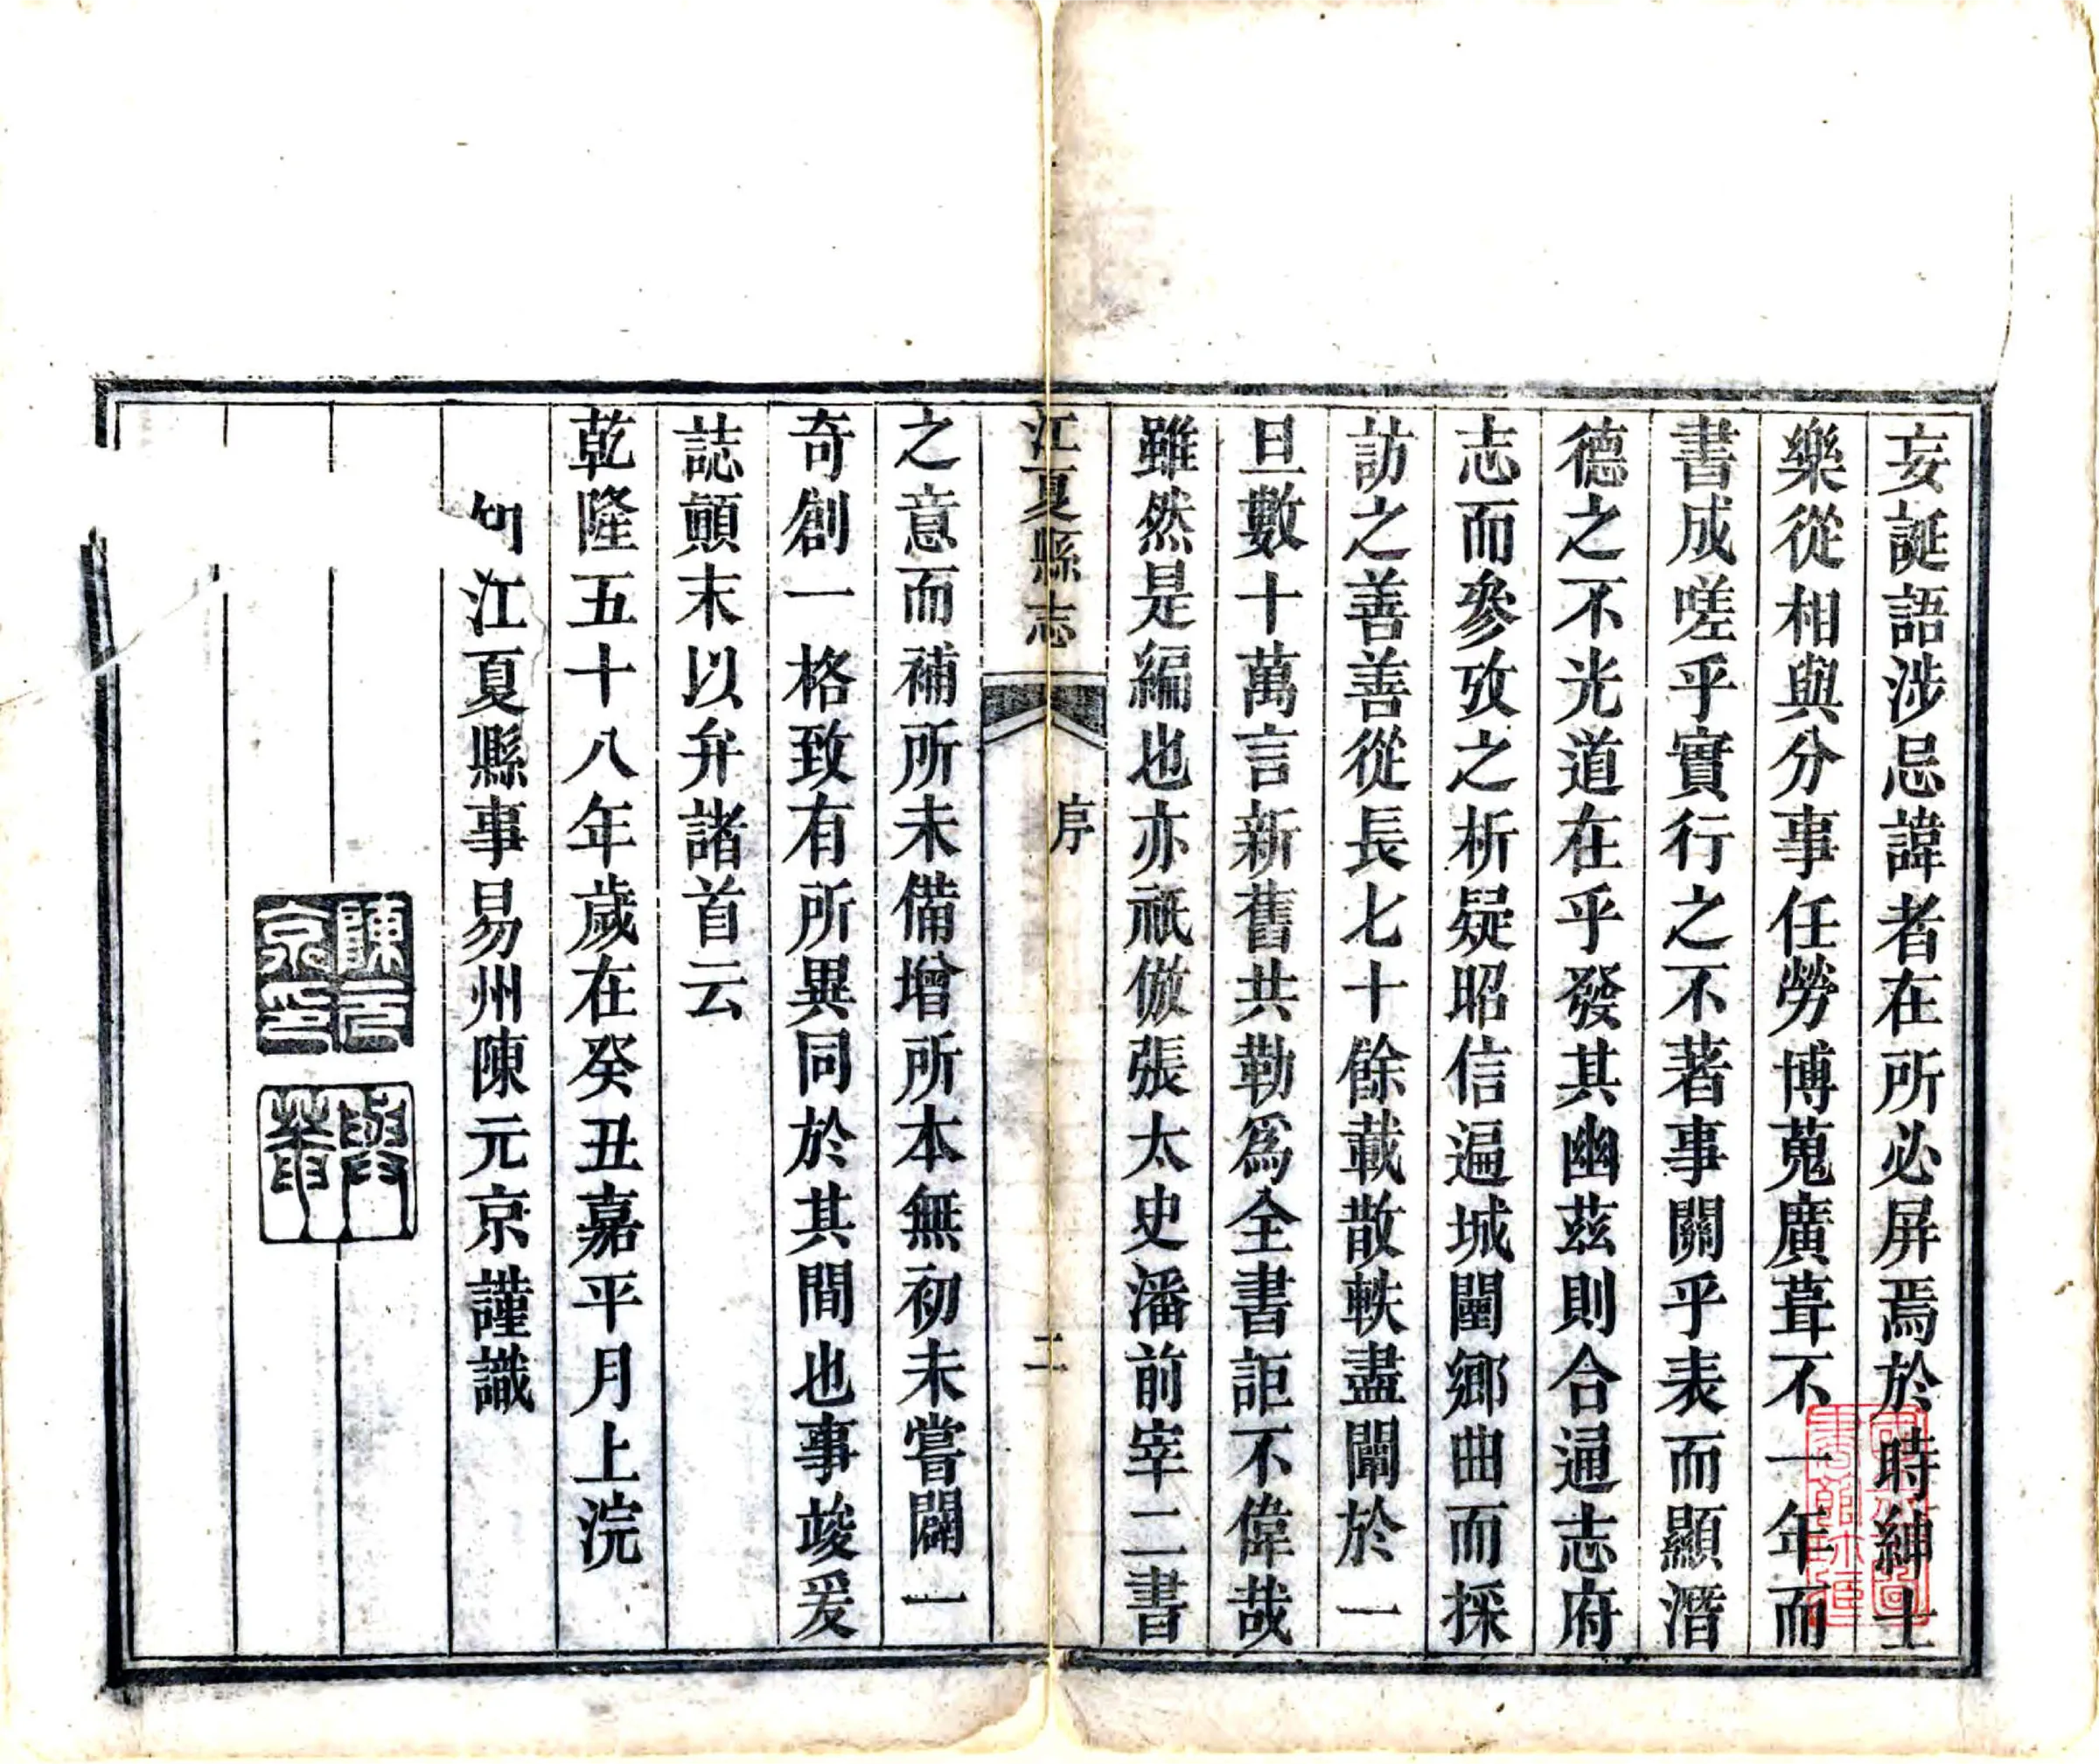 妄誕語涉忌諱者在所必屏焉於時紳士
樂從相與分事任勞博蒐廣葺不一年而
書成嗟乎實行之不著事關乎表而顯潛
德之不光道在乎發其幽茲則合通志府
志而參攷之析疑昭信遍城闉鄉曲而採
訪之善善從長七十餘載散軼盡闡於一
旦數十萬言新舊共勒爲全書詎不偉哉
雖然是編也亦祇倣張太史潘前宰二書
江夏縣志
序
二
之意而補所未備增所本無初未嘗闢一
奇創一格致有所異同於其間也事竣爰
誌顛末以弁諸首云
乾隆五十八年歲在癸丑嘉平月上浣
江夏縣事易州陳元京謹識
陳元京印